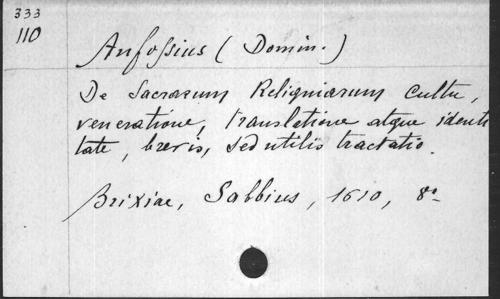 333
110
Anfossius (Domin.)
De Sacrarum Reliquiarum cultu,
veneratione, translatione atque identi
tate, brevis, sed utilis tractatio.
Brixiae, Sabbius, 1610, 8º